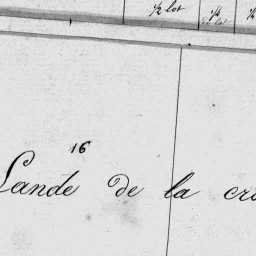 ½ lot
16
Lande de la